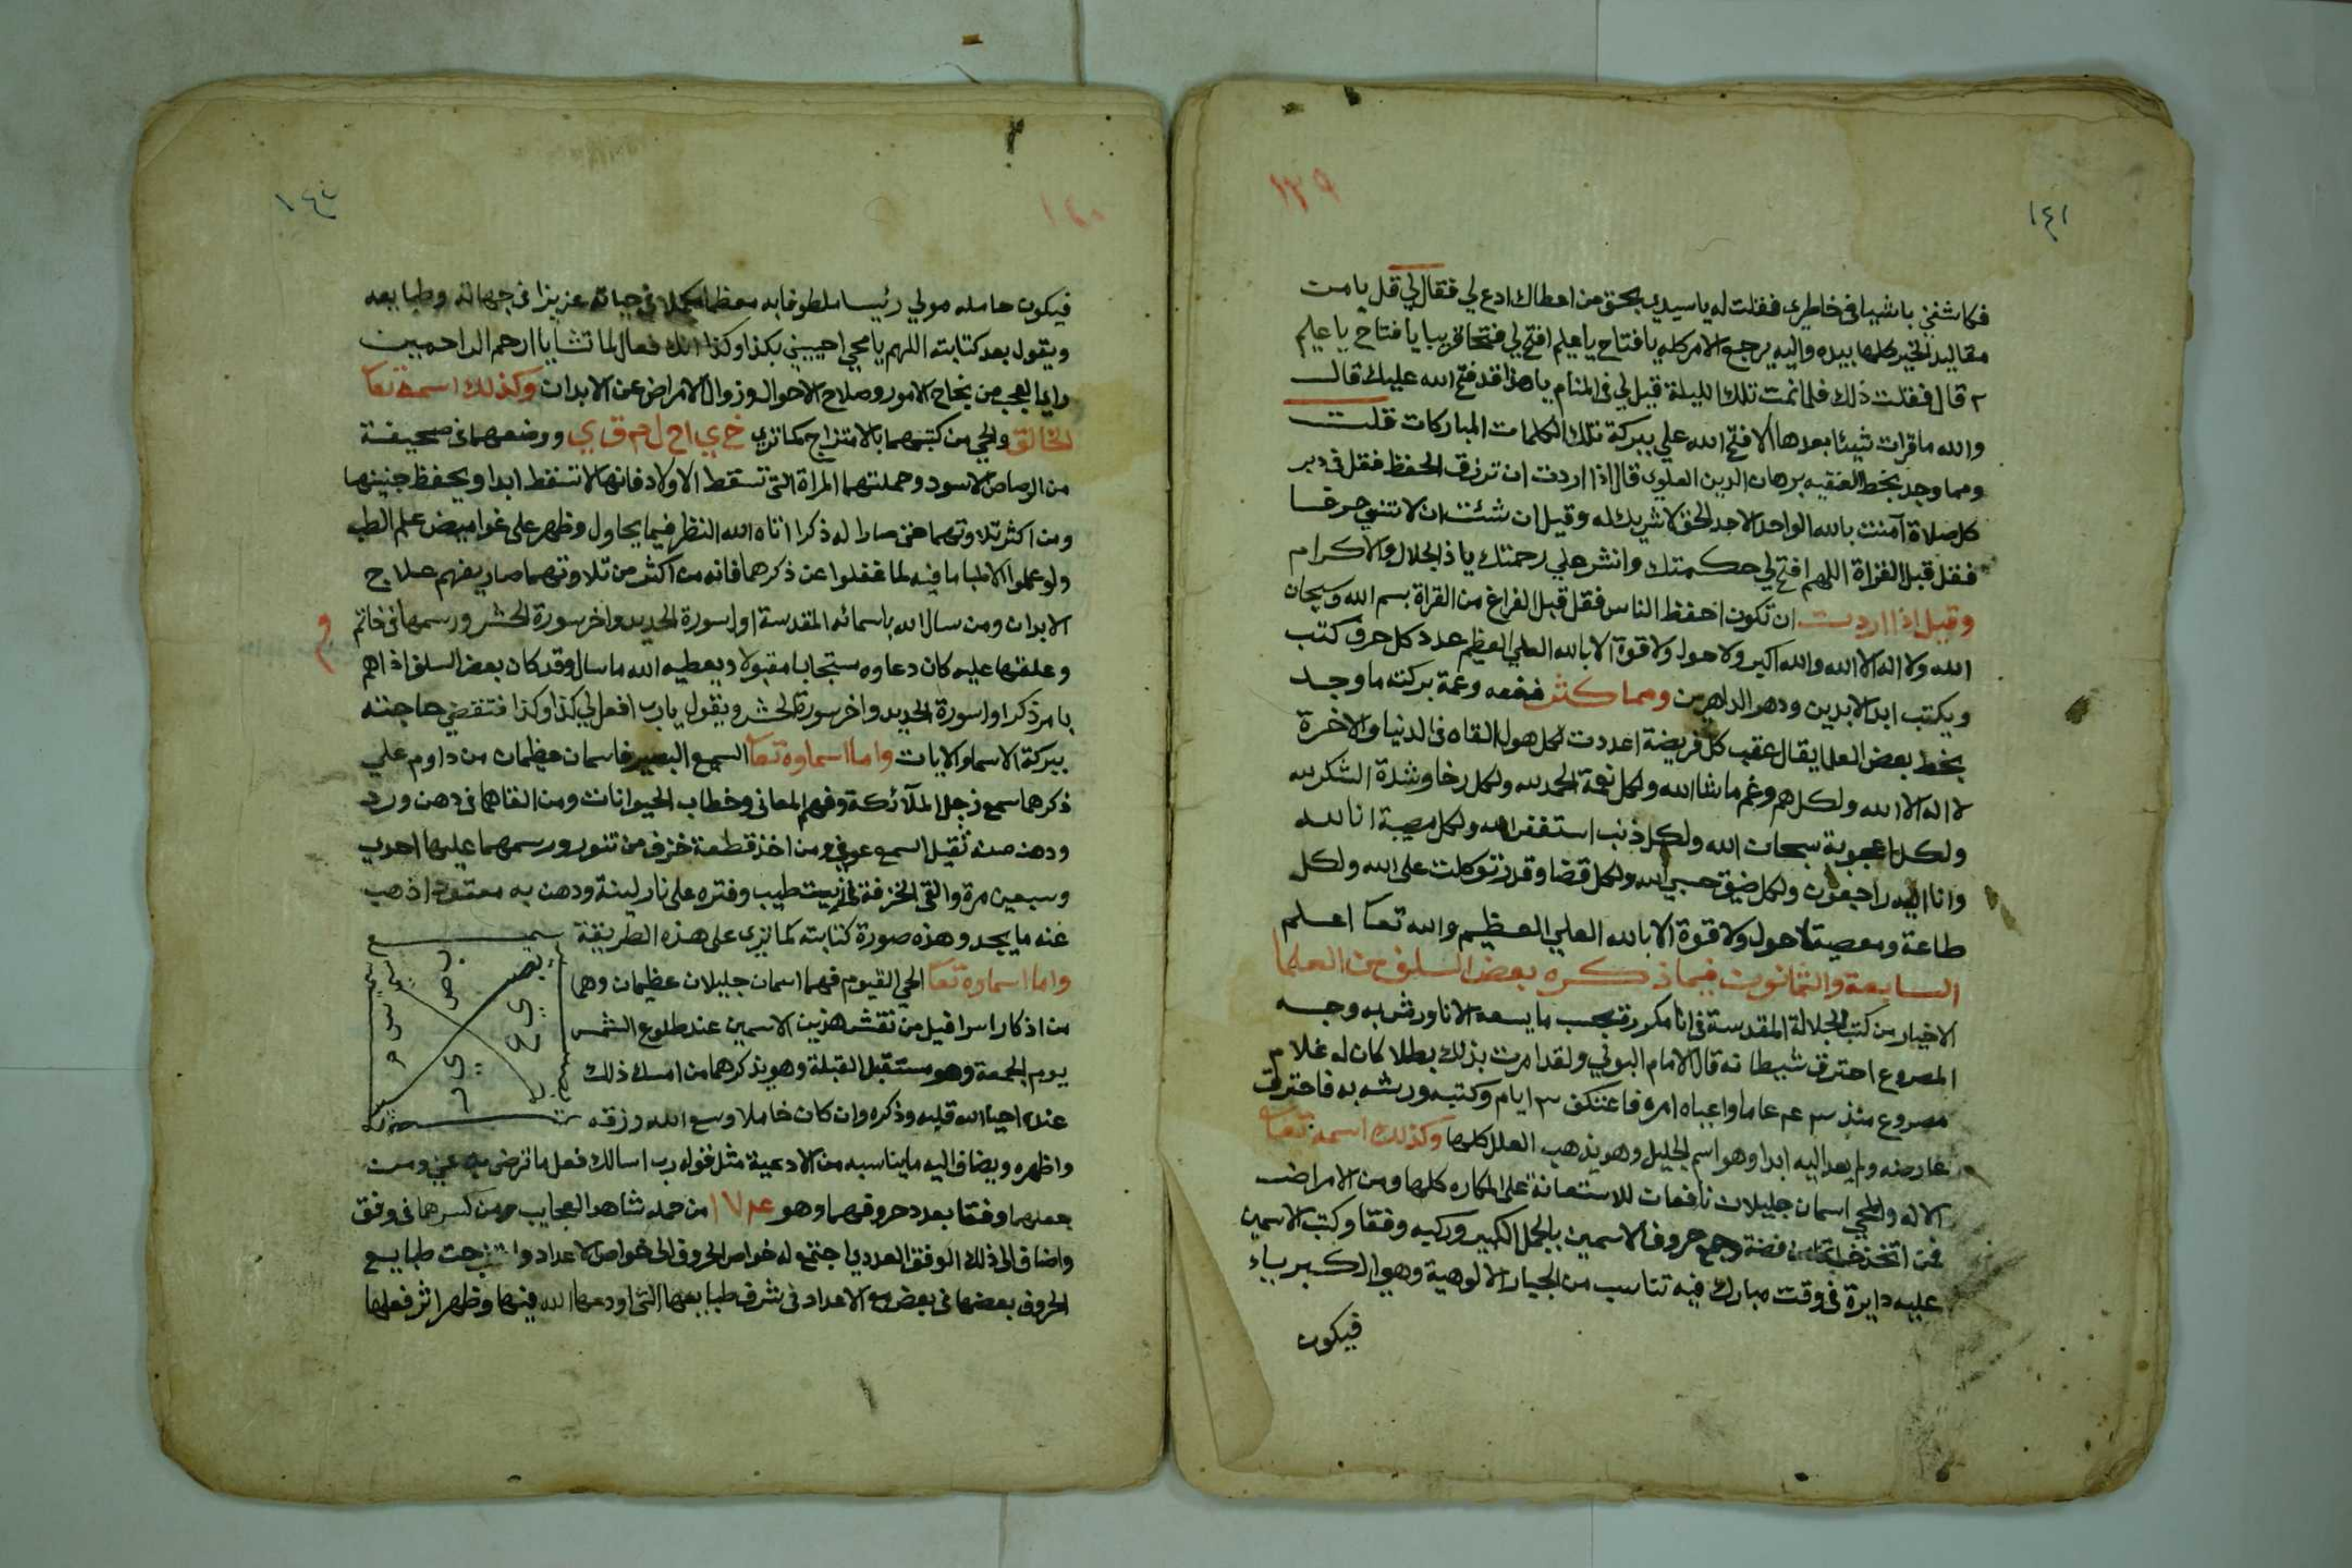 ١٤١
١٣٩
فكاشفني باشيا في خاطري فقلت له يا سيدي بحق من اعطاك ادع لي فقال لي قل يا من
مقاليد الخير كلها بيده واليه يرجع الامر كله يا فتاح يا عليم افتح لي فتحا قريبا يا فتاح يا عليم
٢ قال فقلت ذلك فلما نمت تلك الليلة قيل لي في المنام يا هذا قد فتح الله عليك قال
والله ما قرات شيئا بعدها الا فتح الله علي ببركة تلك الكلمات المباركات قلت
ومما وجد بخط الفقيه برهان الدين العلوي قال اذا اردت ان ترزق الحفظ فقل في دبر
كل صلاة آمنت بالله الواحد الاحد الحق لا شريك له وقيل ان شئت ان لا تنسي حرفا
فقل قبل القراة اللهم افتح لي حكمتك وانشر علي رحمتك يا ذا الجلال والاكرام
وقيل اذا اردت ان تكون احفظ الناس فقل قبل الفراغ من القراة بسم الله وسبحان
الله ولا اله الا الله والله اكبر ولا حول ولا قوة الا بالله العلي العظيم عدد كل حرف كتب
ويكتب ابد الابدين ودهر الداهرين ومما كثر نفعه وعمة بركته ما وجد
بخط بعض العلما يقال عقب كل فريضة اعددت لكل هول القاه في الدنيا والاخرة
لا اله الا الله ولكل هم وغم ما شا الله ولكل نعمة الحمد لله ولكل رخا وشدة الشكر لله
ولكل اعجوبة سبحان الله ولكل ذنب استغفر الله ولكل مصيبة انا لله
وانا اليه راجعون ولكل ضيق حسبي الله ولكل قضا وقدر توكلت على الله ولكل
طاعة ومعصية لا حول ولا قوة الا بالله العلي العظيم والله تعا اعلم
السابعة والثمانون فيما ذكره بعض السلف من العلما
الاخيار من كتب الجلالة المقدسة في انا مكررة بحسب ما يسعه الانا ورش به وجه
المصروع احترق شيطانه قال الامام البوني ولقد امرت بذلك بطلا كان له غلام
مصروع منذ عاما واعياه امره فاعتكف ٣ ايام وكتبه ورشه به فاحترق
عارضه ولم يعد اليه ابدا وهو اسم الجليل وهو يذهب العلل كلها وكذلك اسمه تعا
الاله والمحي اسمان جليلان نافعات للاستعانة على المكاره كلها ومن الامراض
فمن اتخذ خاتما من فضة وجمع حروف الاسمين بالجمل الكبير وركبه وفقا وكتب الاسمين
عليه دايرة في وقت مبارك فيه تناسب من الالوهية وهي الكبرياء
فيكون
١٤٠
فيكون حامله مولي رئيسا معظما في حياته عزيزا في وطبايعه
ويقول بعد كتابته اللهم يا محي احييني بكذا وكذا انك فعال لما تشا يا ارحم الراحمين
راي العجب من نجاح الامور وصلاح الاحوال وزوال الامراض عن الابدان وكذلك اسمه تعا
الخالق والحي من كتبهما بالامتزاج كما تري خ ي ا ح ل ا م ق ي ووضعهما في صحيفة
من الرصاص الاسود وحملتهما المراة التي تسقط الاولاد فانها لا تسقط ابدا ويحفظ جنينها
ومن اكثر تلاوتهما حتى صارا له ذكرا اتاه الله النظر فيما يحاول وظهر على غوامض علم الطب
ولو علموا الاطبا ما فيه لما غفلوا عن ذكرهما فانه من اكثر من تلاوتهما صار يفهم علاج
الابدان ومن سال الله باسمائه المقدسة اول سورة الحديد واخر سورة الحشر ورسمها في خاتم
وعلقها عليه كان دعاوه مستجابا مقبولا ويعطيه الله ما سال وقد كان بعض السلف اذا هم
بامر ذكر اول سورة الحديد واخر سورة الحشر ويقول يا رب افعل لي كذا وكذا فتنقضي حاجته
ببركة الاسما والايات واما اسماوه تعا السميع البصير فاسمان عظيمان من داوم علي
ذكرهما سمع زجل الملآئكة وفهم المعاني وخطاب الحيوانات ومن القاهما في دهن ورد
ودهن منه ثقيل السمع عوفي ومن اخذ قطعة خزف من تنور ورسمهما عليها احدي
وسبعين مرة والقى الخزفة في زيت طيب وفتره على نار لينة ودهن به اذهب
عنه ما يجد وهذه صورة كتابته كما تري على هذه الطريقة
واما اسماوه تعا الحي القيوم فهما اسمان جليلان عظيمان وهما
من اذكار اسرافيل من نقش هذين الاسمين عند طلوع الشمس
يوم الجمعة وهو مستقبل القبلة وهو يذكرهما من امسك ذلك
عنده احيا الله قلبه وذكره وان كان خاملا وسع الله رزقه
واظهره ويضاف اليه ما يناسبه من الادعية مثل قوله رب اسالك فعل ما ترضى به عني ومن
جعلهما وفقا بعدد حروفهما وهو من حمله شاهد العجايب ومن كسرها في وفق
واضاف الى ذلك الوفق العددي اجتمع له خواص الحروف الى خواص الاعداد وامتزجت طبايع
الحروف بعضها في بعض مع الاعداد في شرف طبايعها التي اودعها الله فيها وظهر اثر فعلها